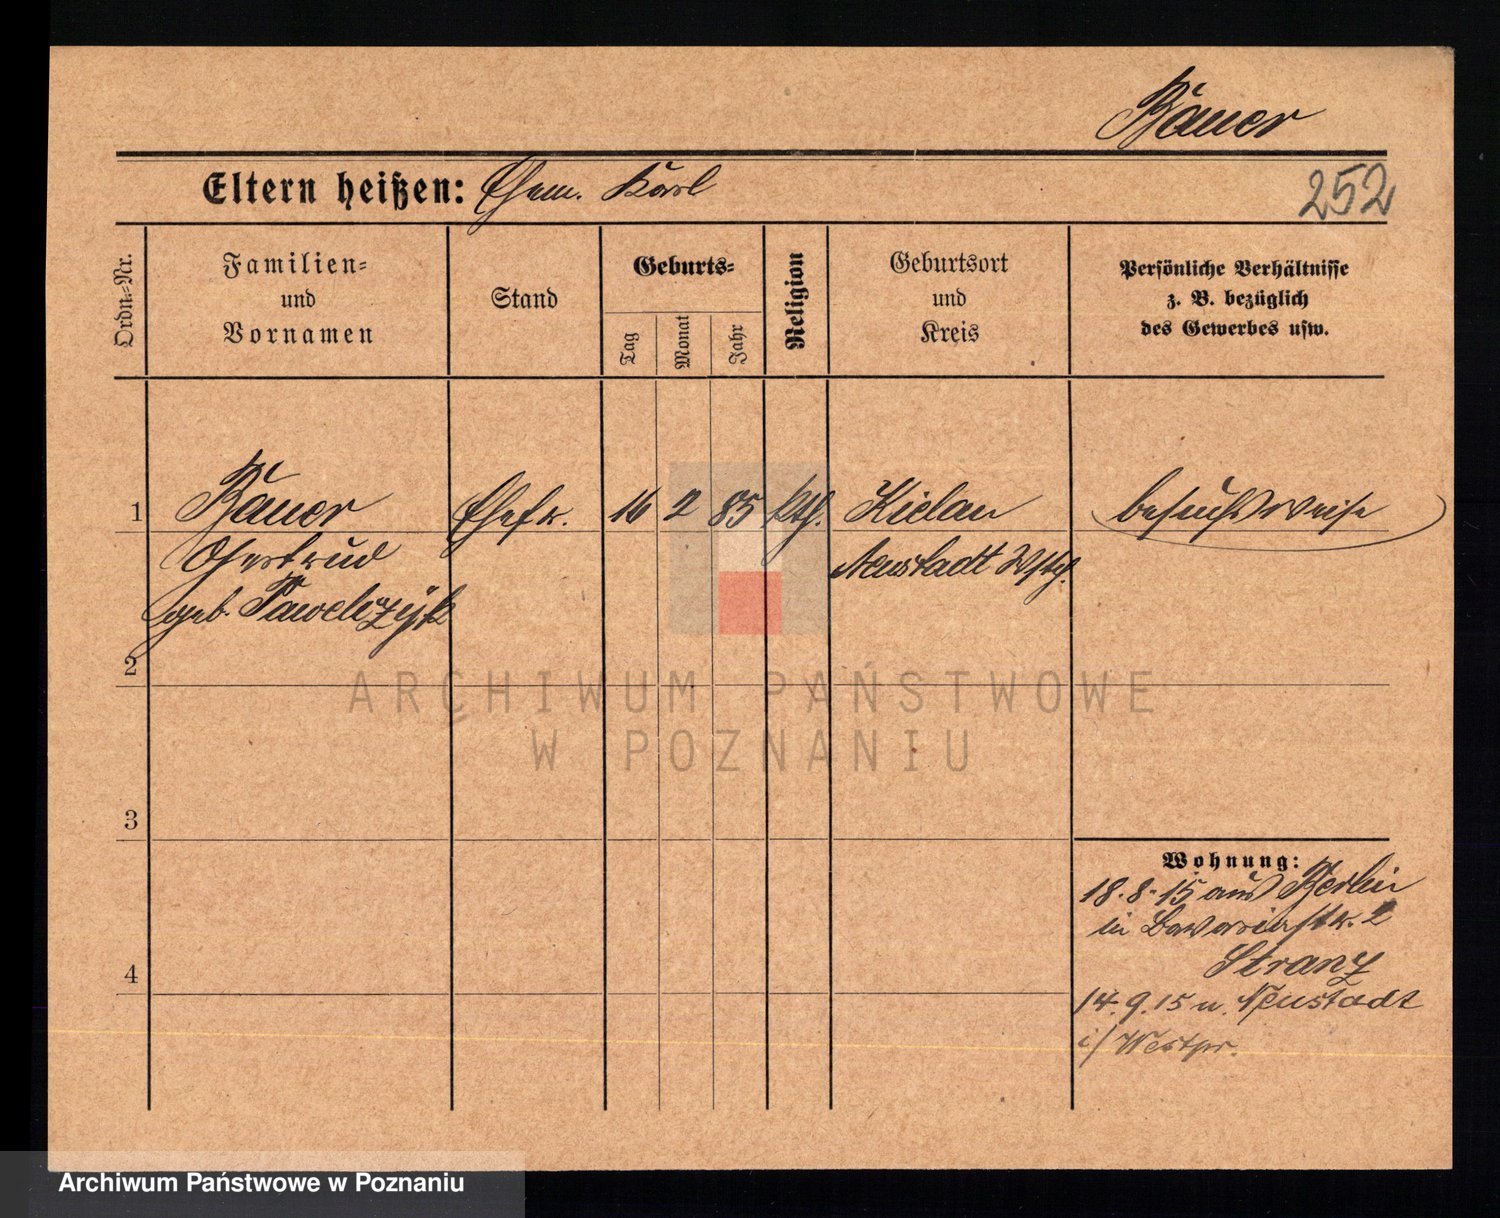 Bauer
Eltern heißen: Ehem. Karl
252
Ordn.-Nr.
Familien-
und
Vornamen
Stand
Geburts-
Tag
Monat
Jahr
Religion
Geburtsort
und
Kreis
Persönliche Verhältnisse
z. B. bezüglich
des Gewerbes usw.
1 Bauer Ehefr. 16 2 85 kth. Kielau besuchsweise
Gertrud Neustadt Wstpr.
geb. Pawelczyk
2
3
4
Wohnung:
18.8.15 aus Berlin
in Bavariastr. 2
Stranz
14.9.15 n. Neustadt
i/ Westpr.
ARCHIWUM PAŃSTWOWE
W POZNANIU
Archiwum Państwowe w Poznaniu